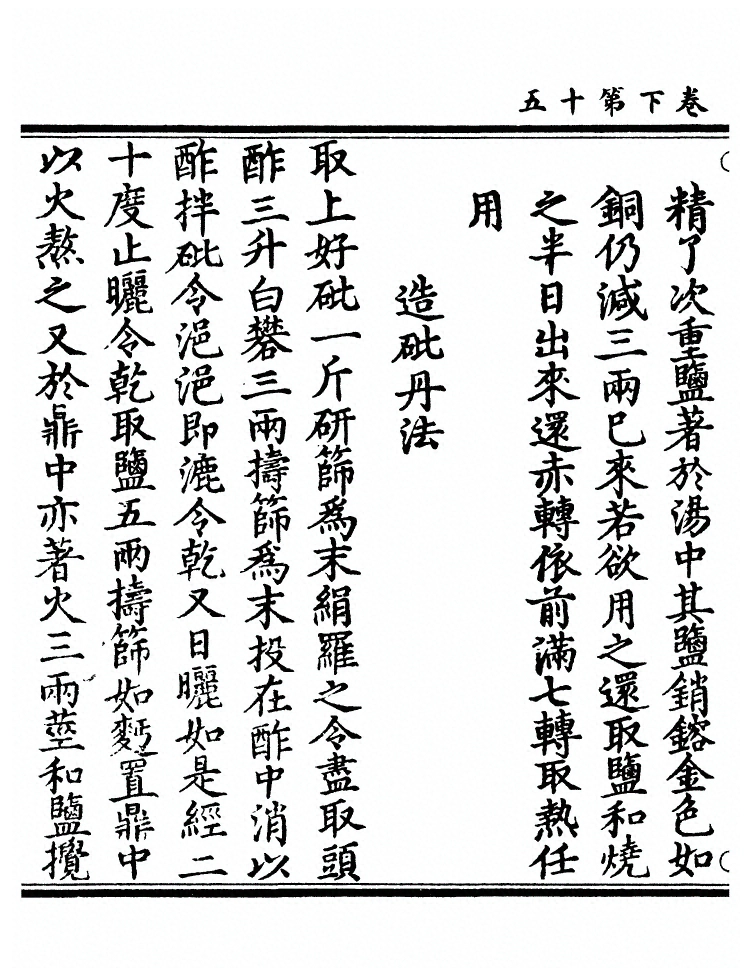 卷下第十五
精了次重鹽著於湯中其鹽銷鎔金色如
銅仍減三兩已來若欲用之還取鹽和燒
之半日出來還赤轉依前滿七轉取熱任
用
造砒丹法
取上好砒一斤研篩為末絹羅之令盡取頭
酢三升白礬三兩擣篩為末投在酢中消以
酢拌砒令浥浥即漉令乾又日曬如是經二
十度止曬令乾取鹽五兩擣篩如麫置鼎中
以火熬之又於鼎中亦著火三兩莖和鹽攪